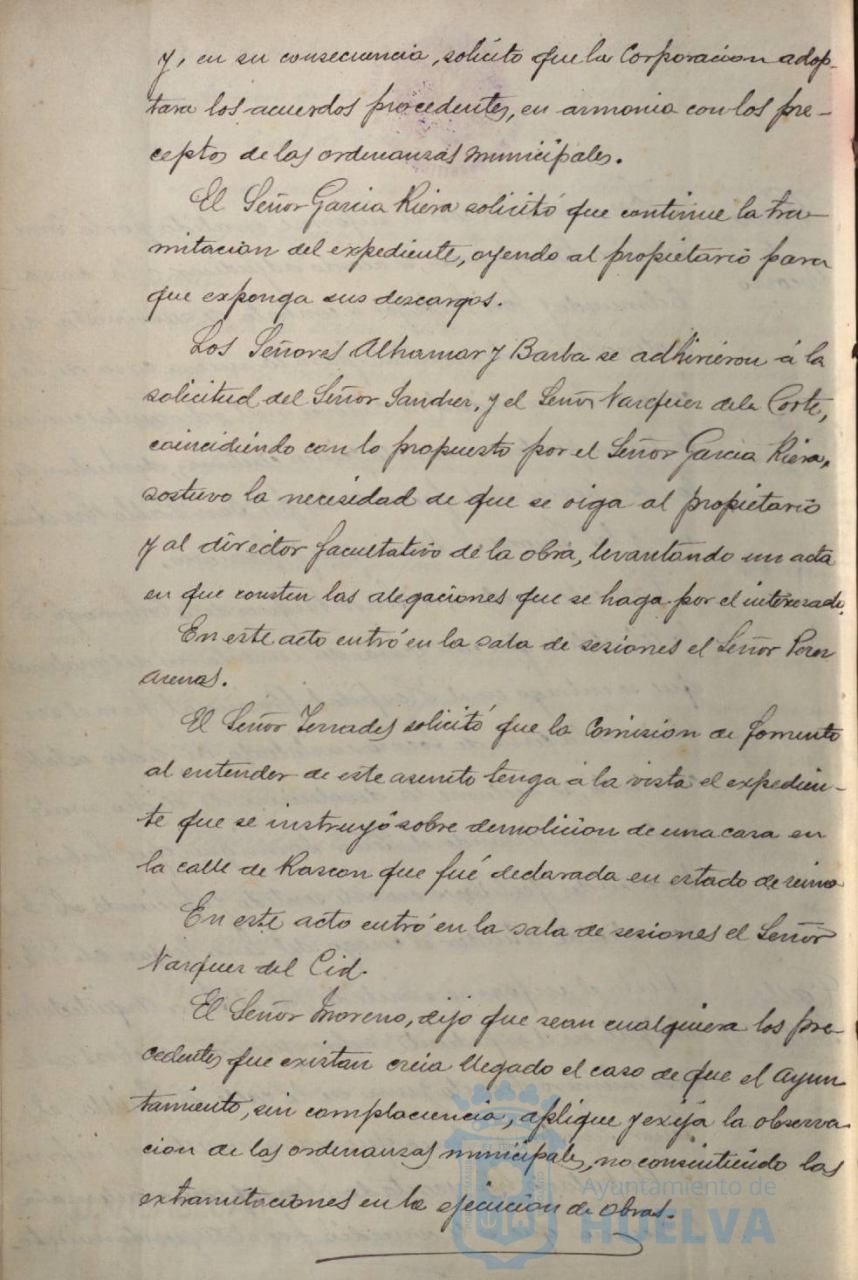 y, en su consecuencia, solicito que la Corporacion adop-
tara los acuerdos procedentes, en armonia con los pre-
ceptos de las ordenanzas municipales.
El Señor Garcia Riera solicitó que continue la tra-
mitacion del expediente, oyendo al propietario para
que exponga sus descargos.
Los Señores Alhamar y Barba se adhirieron á la
solicitud del Señor Sanchez, y el Señor Vazquez de la Corte,
coincidiendo con lo propuesto por el Señor Garcia Riera,
sostuvo la necesidad de que se oiga al propietario
y al director facultativo de la obra, levantando un acta
en que consten las alegaciones que se haga por el interesado.
En este acto entró en la sala de sesiones el Señor Perez
Arenas.
El Señor Terrades solicitó que la Comision de fomento
al entender de este asunto tenga á la vista el expedien-
te que se instruyó sobre demolicion de una casa en
la calle de Rascon que fué declarada en estado de ruina
En este acto entró en la sala de sesiones el Señor
Vazquez del Cid.
El Señor Moreno, dijo que sean cualquiera los pre-
cedentes que existan creia llegado el caso de que el Ayun-
tamiento, sin complacencia, aplique y exija la observa-
cion de las ordenanzas municipales, no consintiendo las
extramitaciones en la ejecucion de obras.
Ayuntamiento de
HUELVA